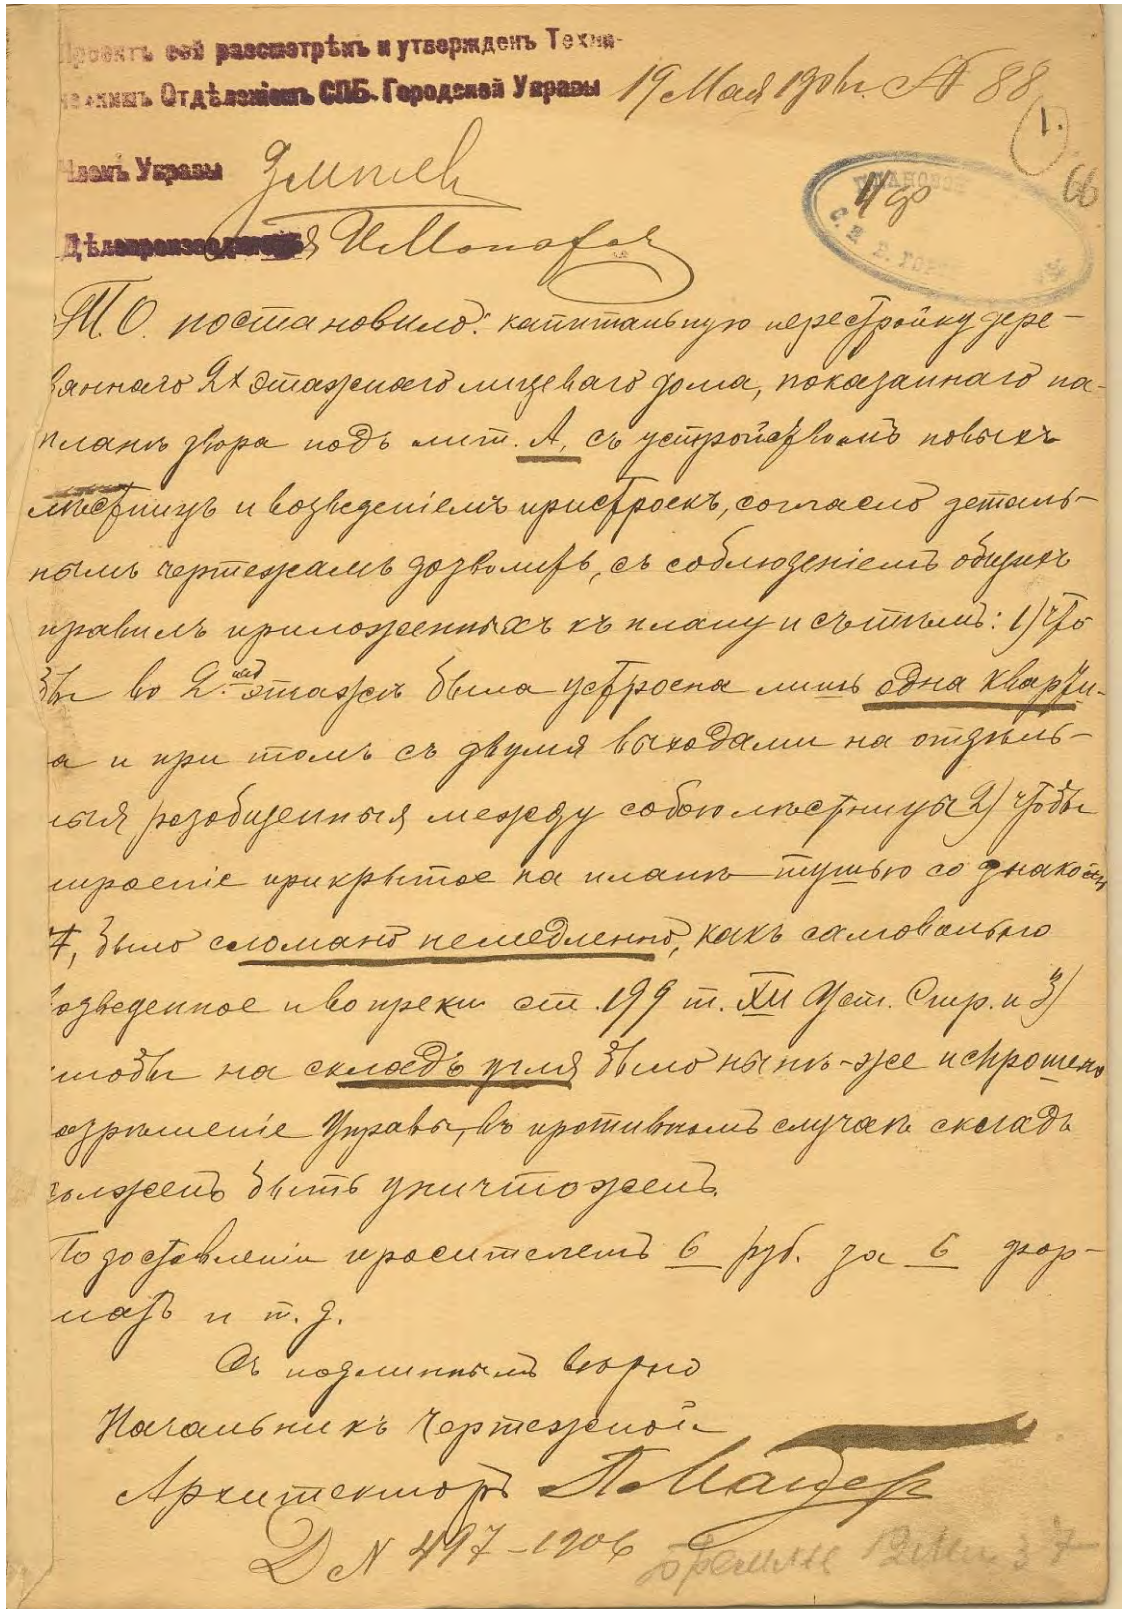 Проектъ сей разсмотрѣнъ и утвержденъ Техни-
ческимъ Отдѣленіемъ СПБ. Городской Управы 19 Мая 1906 г. № 88
1.
66
Членъ Управы
Дѣлопроизводитель
Т.О. постановило: капитальную перестройку дере-
вяннаго 2х этажнаго лицеваго дома, показаннаго на
планѣ двора подъ лит. А, съ устройствомъ новыхъ
лѣстницъ и возведеніемъ пристроекъ, согласно деталь-
нымъ чертежамъ дозволить, съ соблюденіемъ общихъ
правилъ приложенныхъ къ плану и съ тѣмъ: 1) что
бы во 2.омъ этажѣ была устроена лишь одна кварти-
а и при томъ съ двумя выходами на отдѣль-
ныя разобщенныя между собою лѣстницы 2) чтобы
строеніе прикрытое на планѣ тушью со знакомъ
, было сломано немедленно, какъ самовольно
возведенное и вопреки ст. 199 т. XII Уст. Стр. и 3)
чтобы на складъ угля было нынѣ-же испрошено
азрѣшеніе Управы, въ противномъ случаѣ складъ
долженъ быть уничтоженъ.
По доставленіи просителемъ 6 руб. за 6 фор-
матъ и т. д.
Съ подлиннымъ вѣрно
Начальникъ Чертежной
Архитекторъ
Д № 497-1906